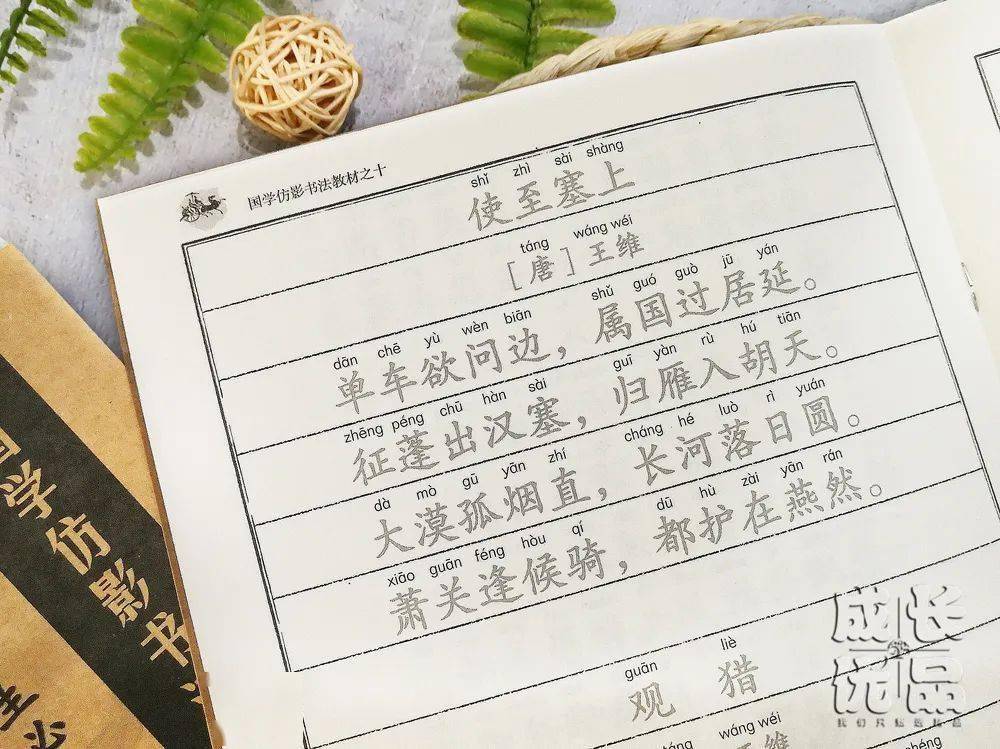 国学仿影书法教材之十
shǐ zhì sài shàng
使至塞上
táng wáng wéi
[唐]王维
dān chē yù wèn biān shǔ guó guò jū yán
单车欲问边，属国过居延。
zhēng péng chū hàn sài guī yàn rù hú tiān
征蓬出汉塞，归雁入胡天。
dà mò gū yān zhí cháng hé luò rì yuán
大漠孤烟直，长河落日圆。
xiāo guān féng hòu qí dū hù zài yān rán
萧关逢候骑，都护在燕然。
guān liè
观 猎
wáng wéi
王维
国学仿影书
成长
优品